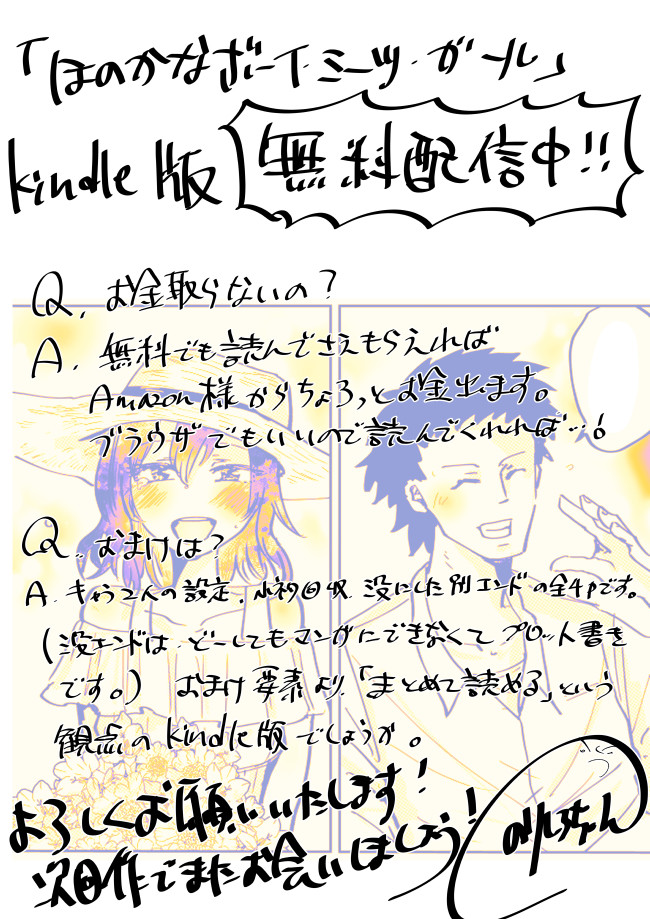 「ほのかなボーイ・ミーツ・ガール」
kindle版 無料配信中!!
Q. お金取らないの?
A. 無料でも読んでさえもらえれば
Amazon様からちょろっとお金出ます。
ブラウザでもいいので読んでくれれば…!
Q. おまけは?
A. キャラ2人の設定、 没にした別エンドの全4Pです。
(没エンドは どーしてもマンガにできなくて プロット書き
です。) おまけ要素より、「まとめて読める」という
観点の kindle版でしょうか。
よろしくお願いいたします!
次回作でまたお会いしましょう!